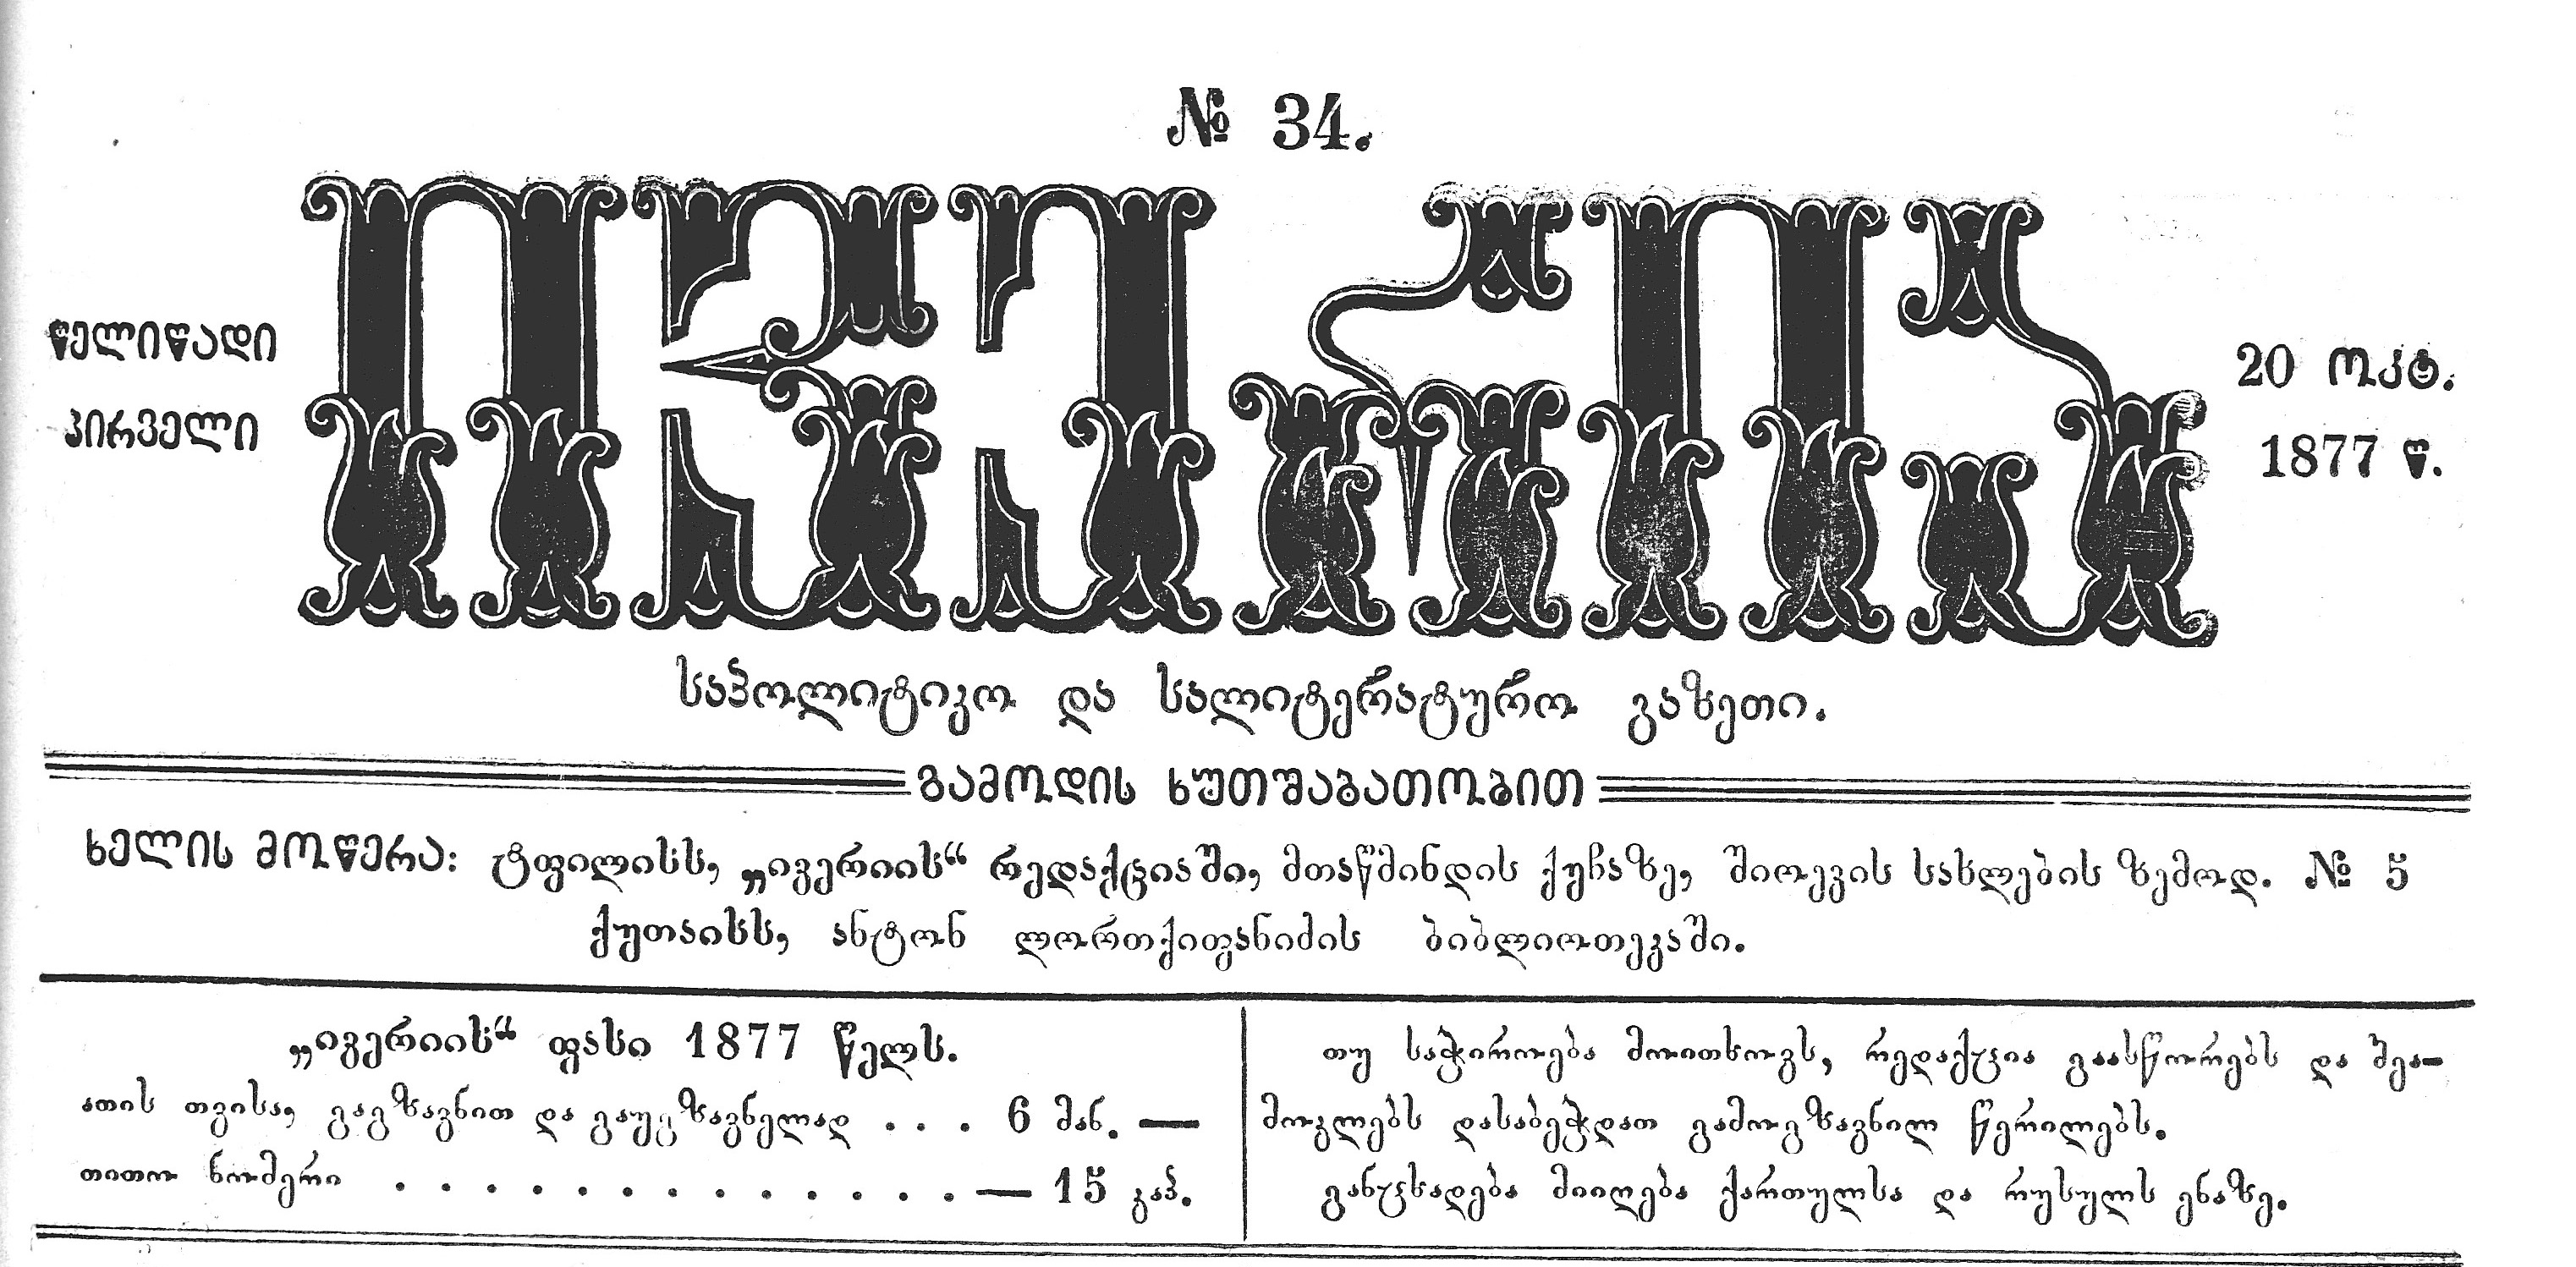 № 34.
ივერია
წელიწადი
პირველი
20 ოკტ.
1877 წ.
საპოლიტიკო და სალიტერატურო გაზეთი.
გამოდის ხუთშაბათობით
ხელის მოწერა: ტფილისს, „ივერიის“ რედაქციაში, მთაწმინდის ქუჩაზე, შიოევის სახლების ზემოდ. № 5
ქუთაისს, ანტონ ლორთქიფანიძის ბიბლიოთეკაში.
„ივერიის“ ფასი 1877 წელს.
ათის თვისა, გაგზავნით და გაუგზავნელად . . . 6 მან. —
თითო ნომერი . . . . . . . . . . . . . — 15 კაპ.
თუ საჭიროება მოითხოვს, რედაქცია გაასწორებს და შეა-
მოკლებს დასაბეჭდათ გამოგზავნილ წერილებს.
განცხადება მიიღება ქართულსა და რუსულს ენაზე.